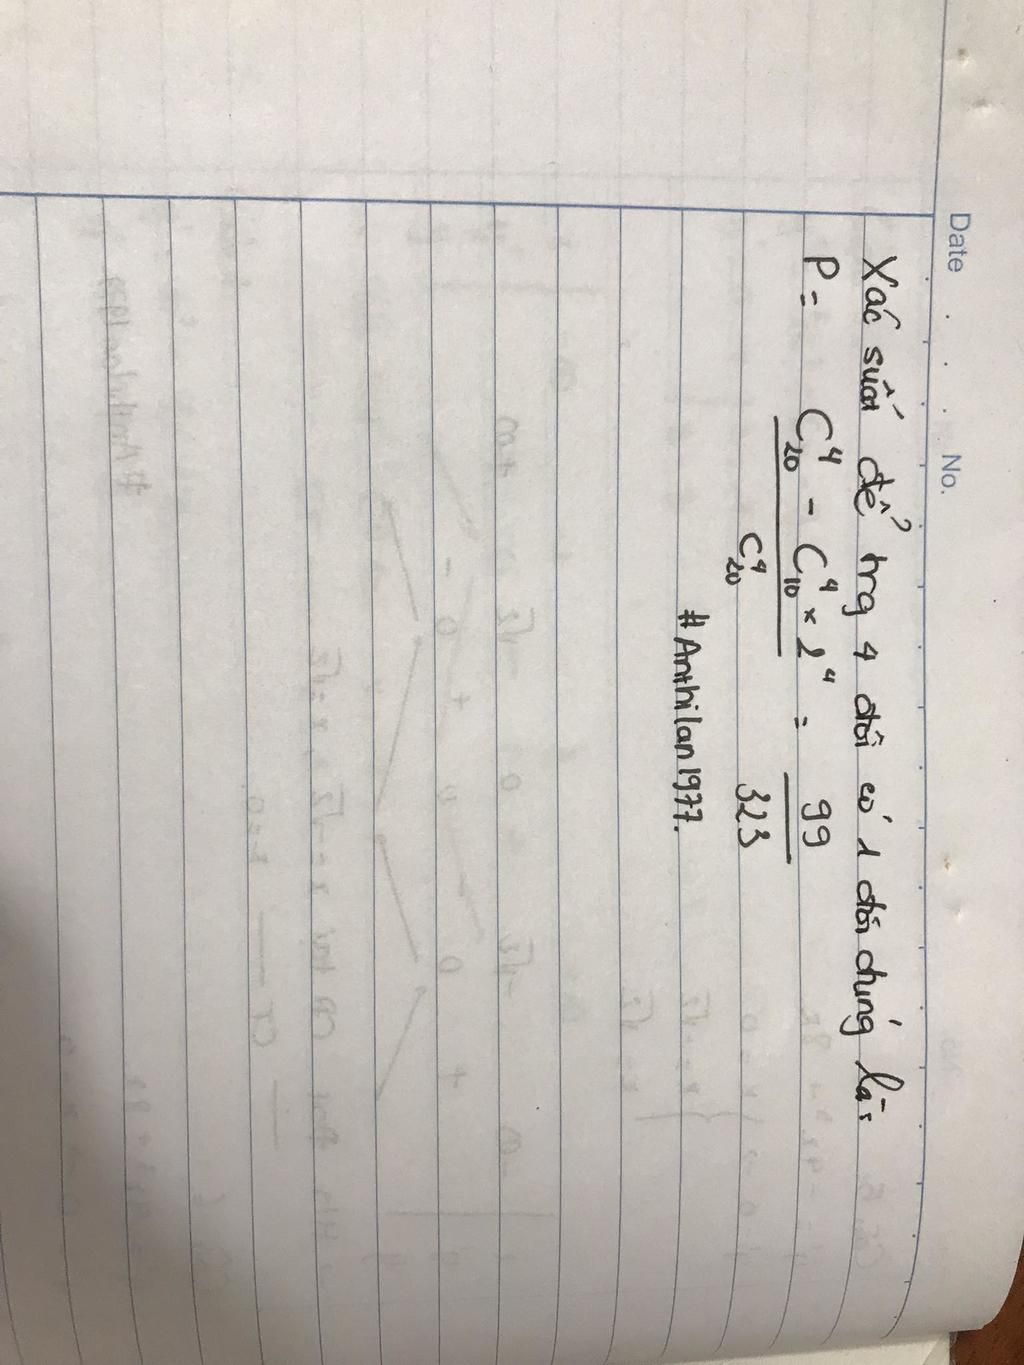 Date . . . No.
Xác suất để trg 4 đôi có 1 đôi đúng là:
P = C⁴₂₀ - C⁴₁₀ × 2⁴ / C⁴₂₀ = 99 / 323
#Anthilan1977.